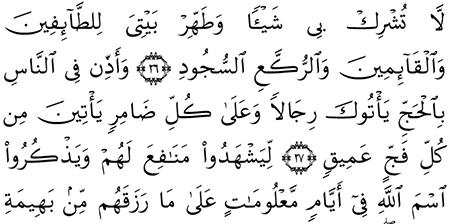 لَّا تُشْرِكْ بِى شَيْـًٔا وَطَهِّرْ بَيْتِىَ لِلطَّآئِفِينَ
وَٱلْقَآئِمِينَ وَٱلرُّكَّعِ ٱلسُّجُودِ ﴿٢٦﴾ وَأَذِّن فِى ٱلنَّاسِ
بِٱلْحَجِّ يَأْتُوكَ رِجَالًا وَعَلَىٰ كُلِّ ضَامِرٍ يَأْتِينَ مِن
كُلِّ فَجٍّ عَمِيقٍ ﴿٢٧﴾ لِّيَشْهَدُوا۟ مَنَـٰفِعَ لَهُمْ وَيَذْكُرُوا۟
ٱسْمَ ٱللَّهِ فِىٓ أَيَّامٍ مَّعْلُومَـٰتٍ عَلَىٰ مَا رَزَقَهُم مِّنۢ بَهِيمَةِ